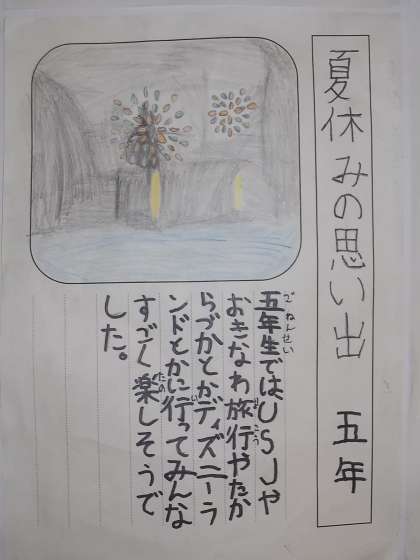 夏休みの思い出 五年
五年生ではUSJや
おきなわ旅行やたか
らづかとかディズニーラ
ンドとかに行ってみんな
すごく楽しそうで
した。